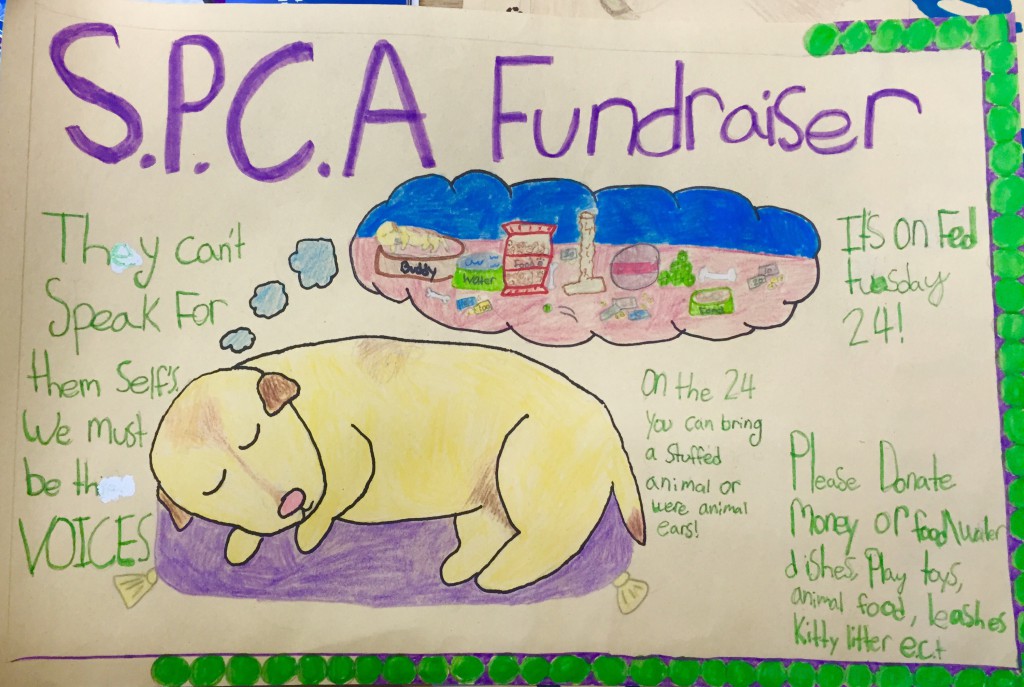 S.P.C.A Fundraiser
They can't
Speak For
them Self's.
We must
be th
VOICES
Buddy
Water
Food
Food
It's on Fed
tuesday
24!
on the 24
You can bring
a Stuffed
animal or
were animal
ears!
Please Donate
Money or food\water
dishes, Play toys,
animal food, leashes
Kitty litter e.c.t